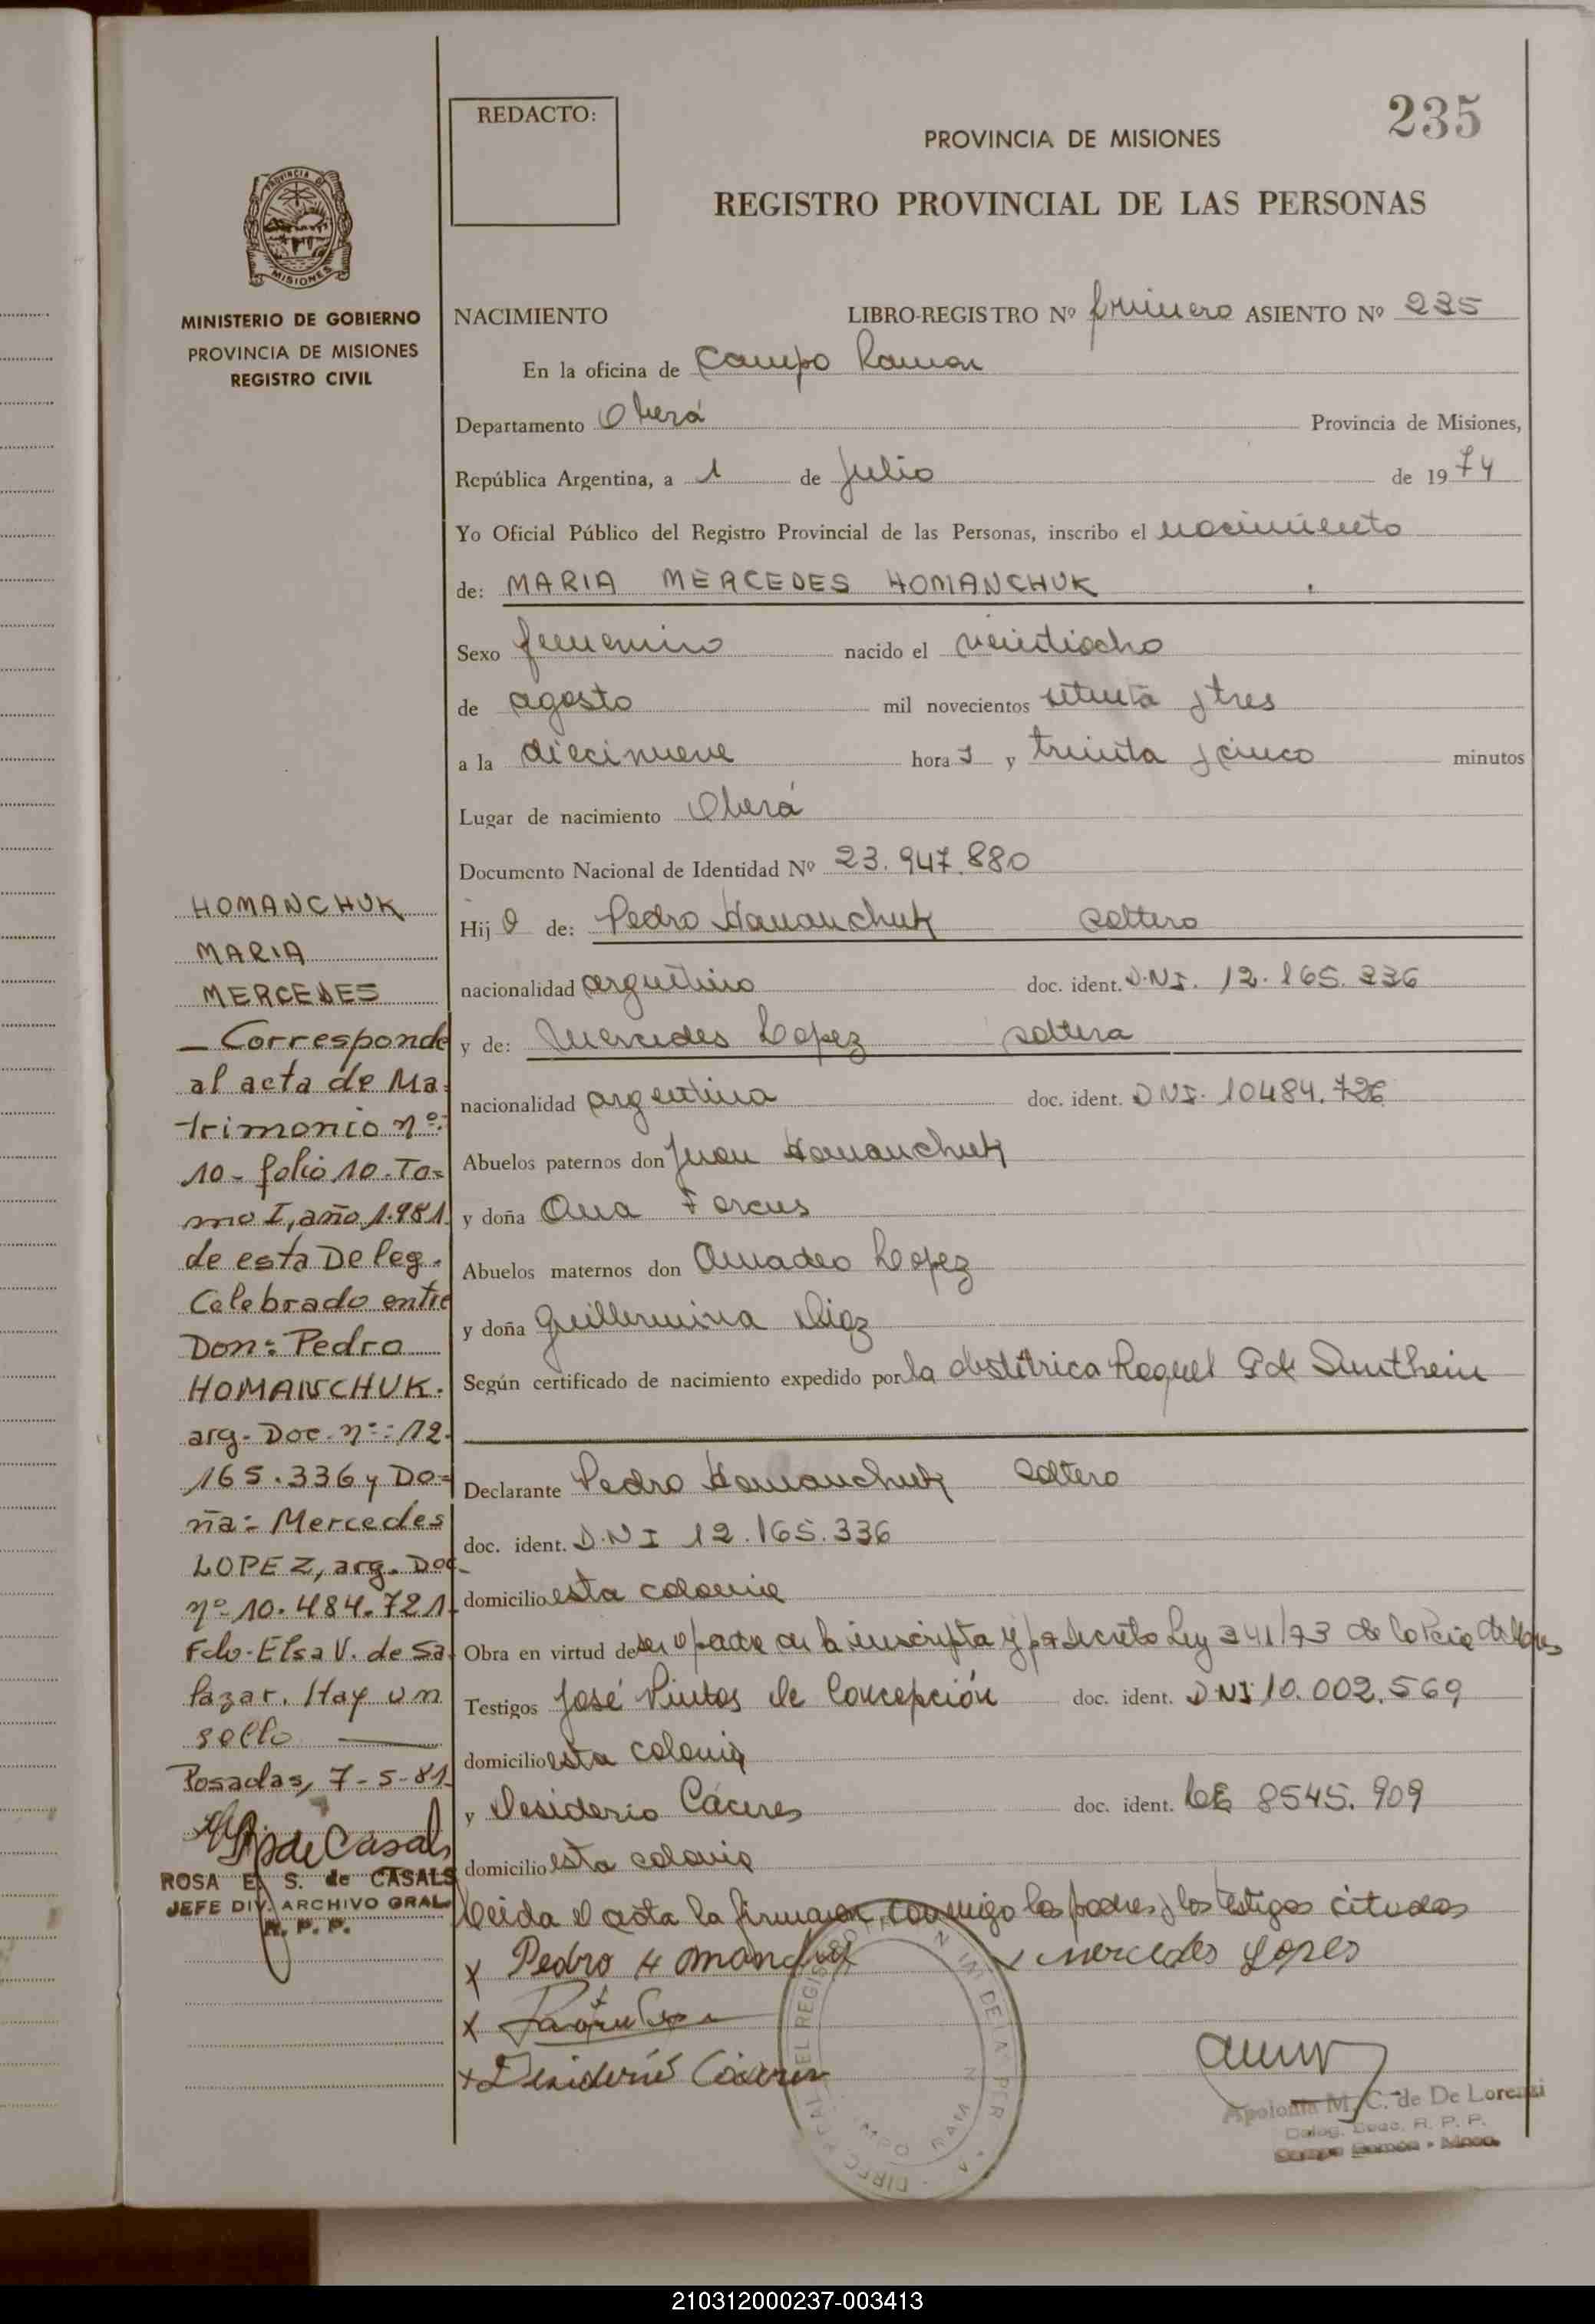 REDACTO:
235
PROVINCIA DE MISIONES
REGISTRO PROVINCIAL DE LAS PERSONAS
PROVINCIA DE
MISIONES
MINISTERIO DE GOBIERNO
PROVINCIA DE MISIONES
REGISTRO CIVIL
NACIMIENTO LIBRO-REGISTRO Nº primero ASIENTO Nº 235
En la oficina de Campo Ramon
Departamento Oberá Provincia de Misiones,
República Argentina, a 1 de Julio de 1974
Yo Oficial Público del Registro Provincial de las Personas, inscribo el nacimiento
de: MARIA MERCEDES HOMANCHUK
Sexo femenino nacido el veintiocho
de agosto mil novecientos setenta y tres
a la diecinueve hora s y treinta y cinco minutos
Lugar de nacimiento Oberá
Documento Nacional de Identidad Nº 23.947.880
Hij a de: Pedro Homanchuk soltero
nacionalidad argentino doc. ident. D.N.I. 12.165.336
y de: Mercedes Lopez soltera
nacionalidad argentina doc. ident. DNI. 10484.726
Abuelos paternos don Juan Homanchuk
y doña Ana Forcus
Abuelos maternos don Amadeo Lopez
y doña Guillermina Diaz
Según certificado de nacimiento expedido por la obstétrica Raquel P de
Declarante Pedro Homanchuk soltero
doc. ident. D.N.I 12.165.336
domicilio esta colonia
Obra en virtud de ser padre de la inscripta y decreto Ley 341/73 de la
Testigos José Pintos de Concepción doc. ident. DNI 10.002.569
domicilio esta colonia
y Desiderio Cáceres doc. ident. LE 8545.909
domicilio esta colonia
Leida el acta la firman conmigo los padres y los testigos citados
x Pedro Homanchuk x Mercedes Lopes
x
x Desiderio Cáceres
Apolonia M. C. de De Lorenzi
Deleg. R. P. P.
Campo Ramón - Mnes.
HOMANCHUK
MARIA
MERCEDES
— Corresponde
al acta de Ma-
trimonio nº:
10- folio 10-To-
mo I, año 1.981
de esta Deleg.
Celebrado entre
Don: Pedro
HOMANCHUK.
arg- Doc. nº: 12.
165.336 y Do-
ña: Mercedes
LOPEZ, arg. Doc
nº 10.484.721.
Fdo-Elsa V. de Sa-
lazar. Hay un
sello —
Posadas, 7-5-81
ROSA E. S. de CASALS
JEFE DIV. ARCHIVO GRAL.
R. P. P.
210312000237-003413